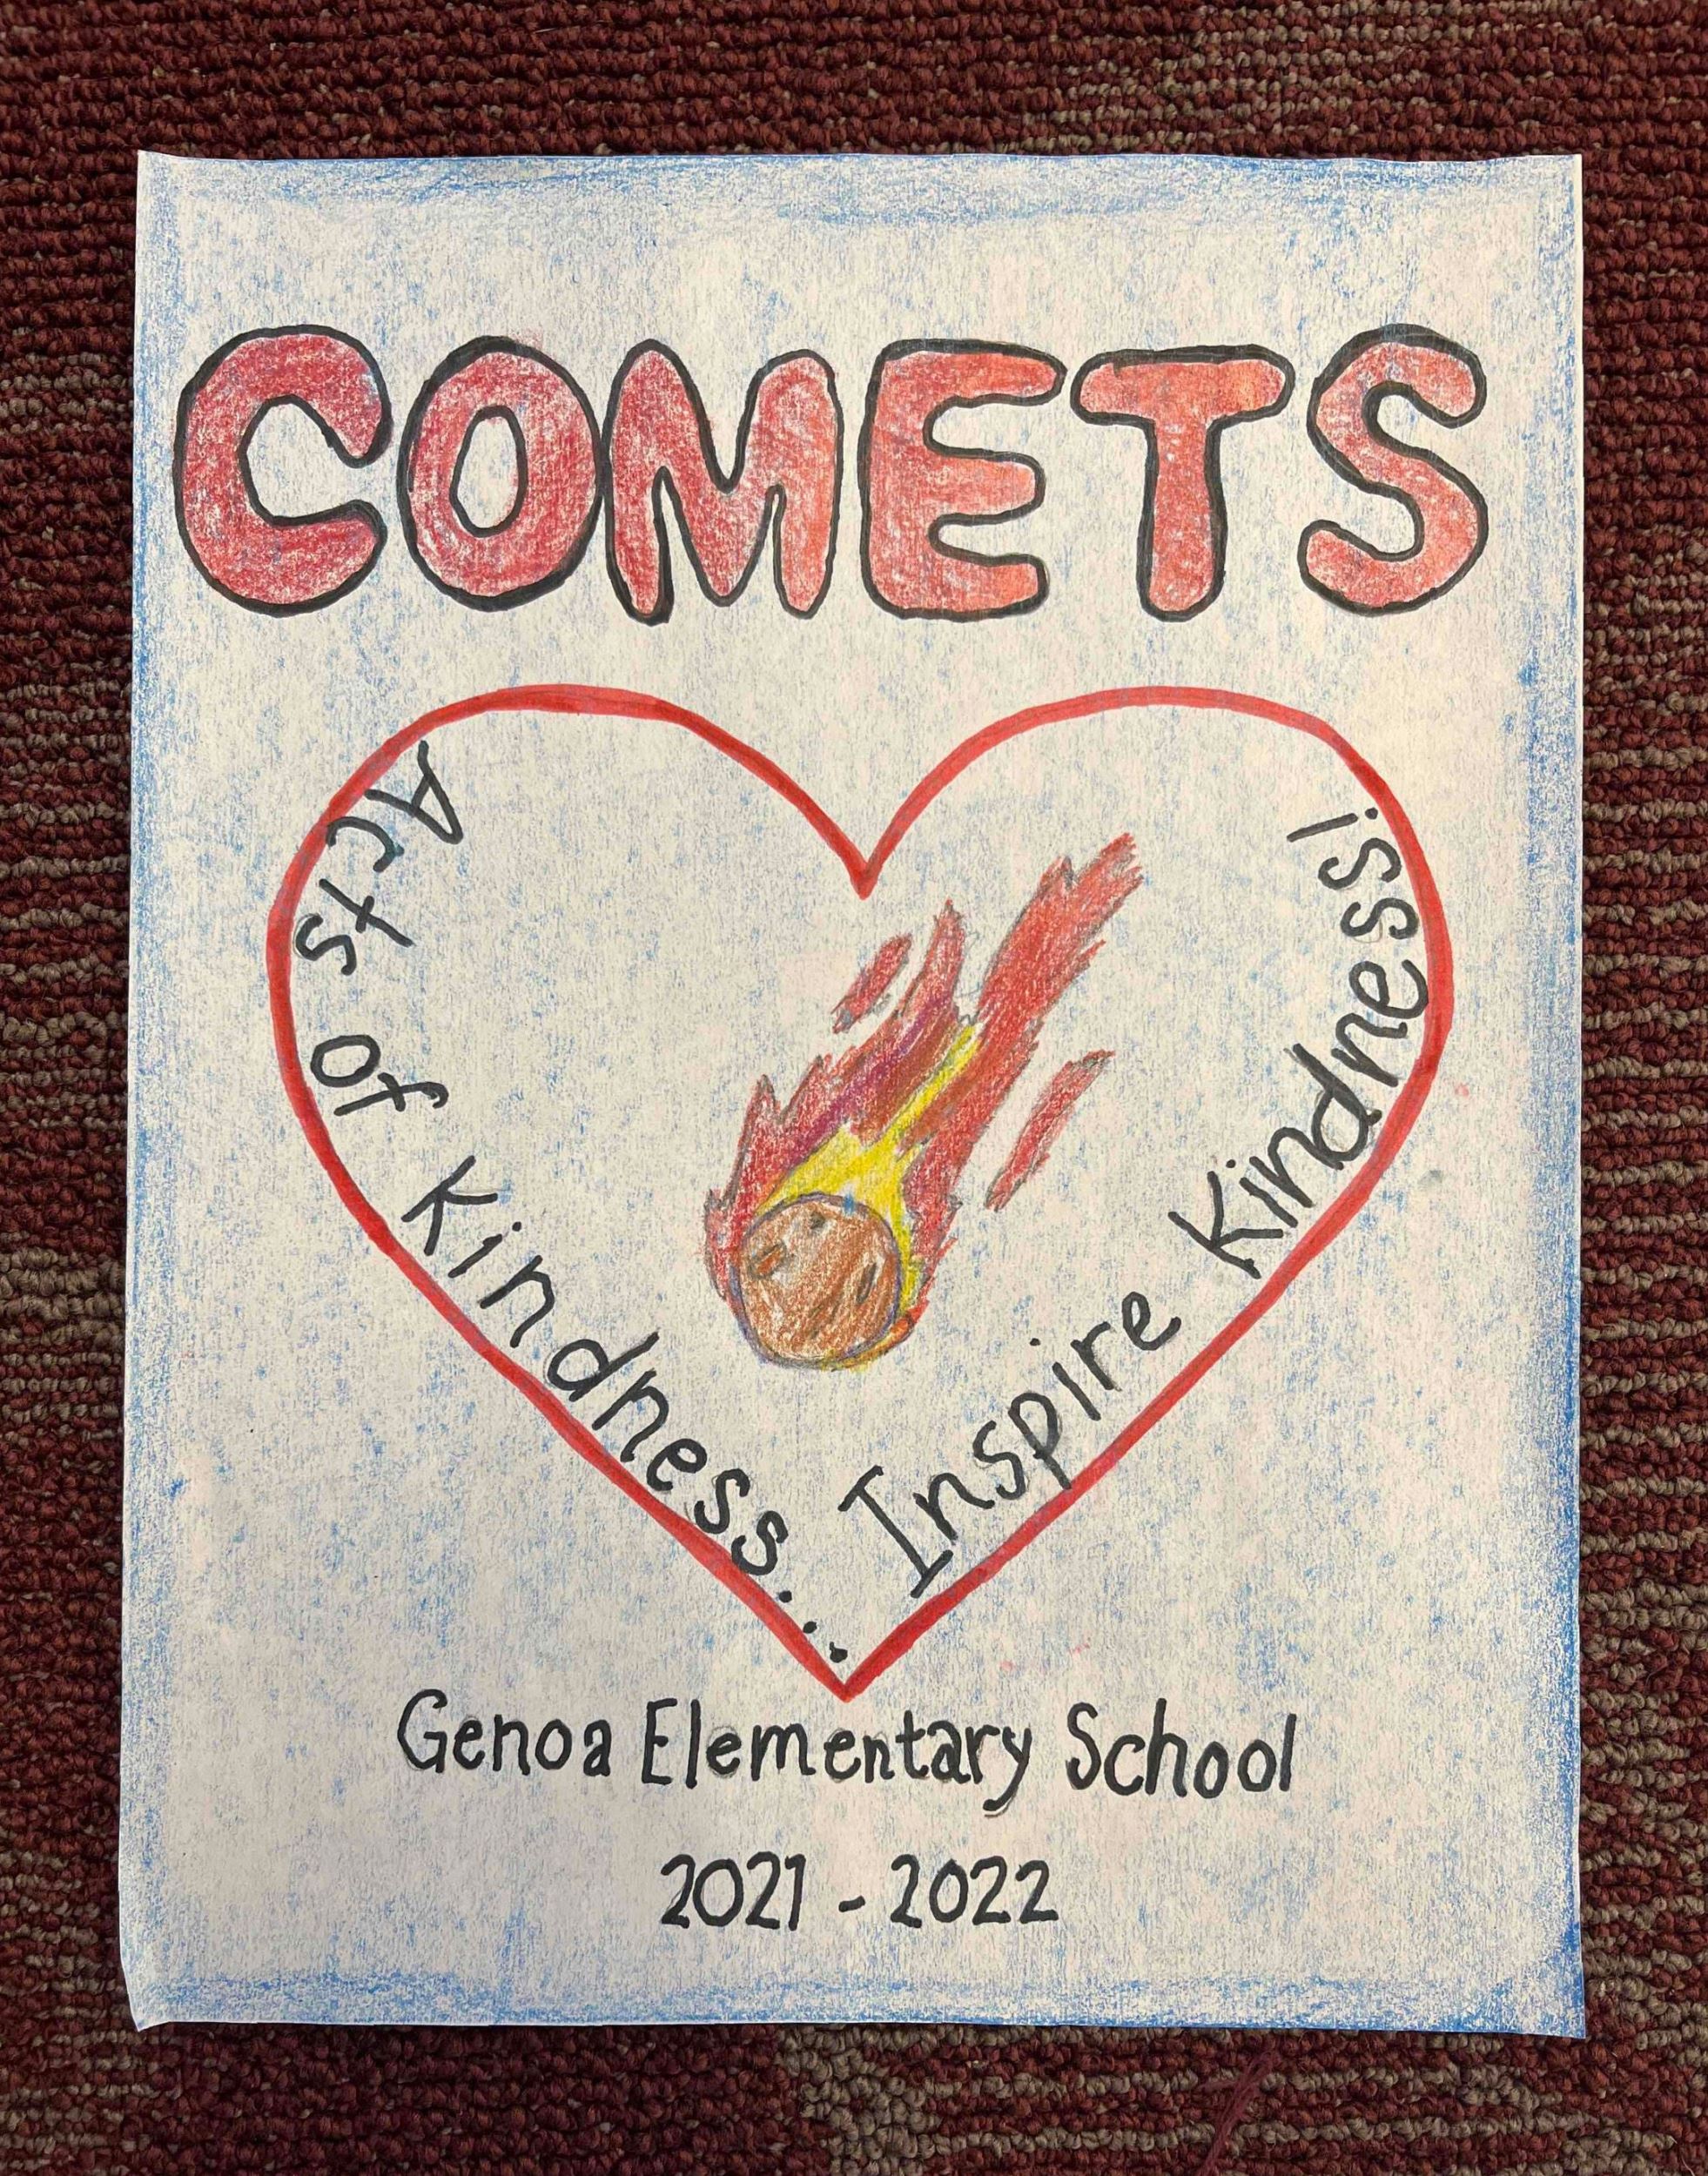 COMETS
Acts of Kindness... Inspire Kindness!
Genoa Elementary School
2021 - 2022